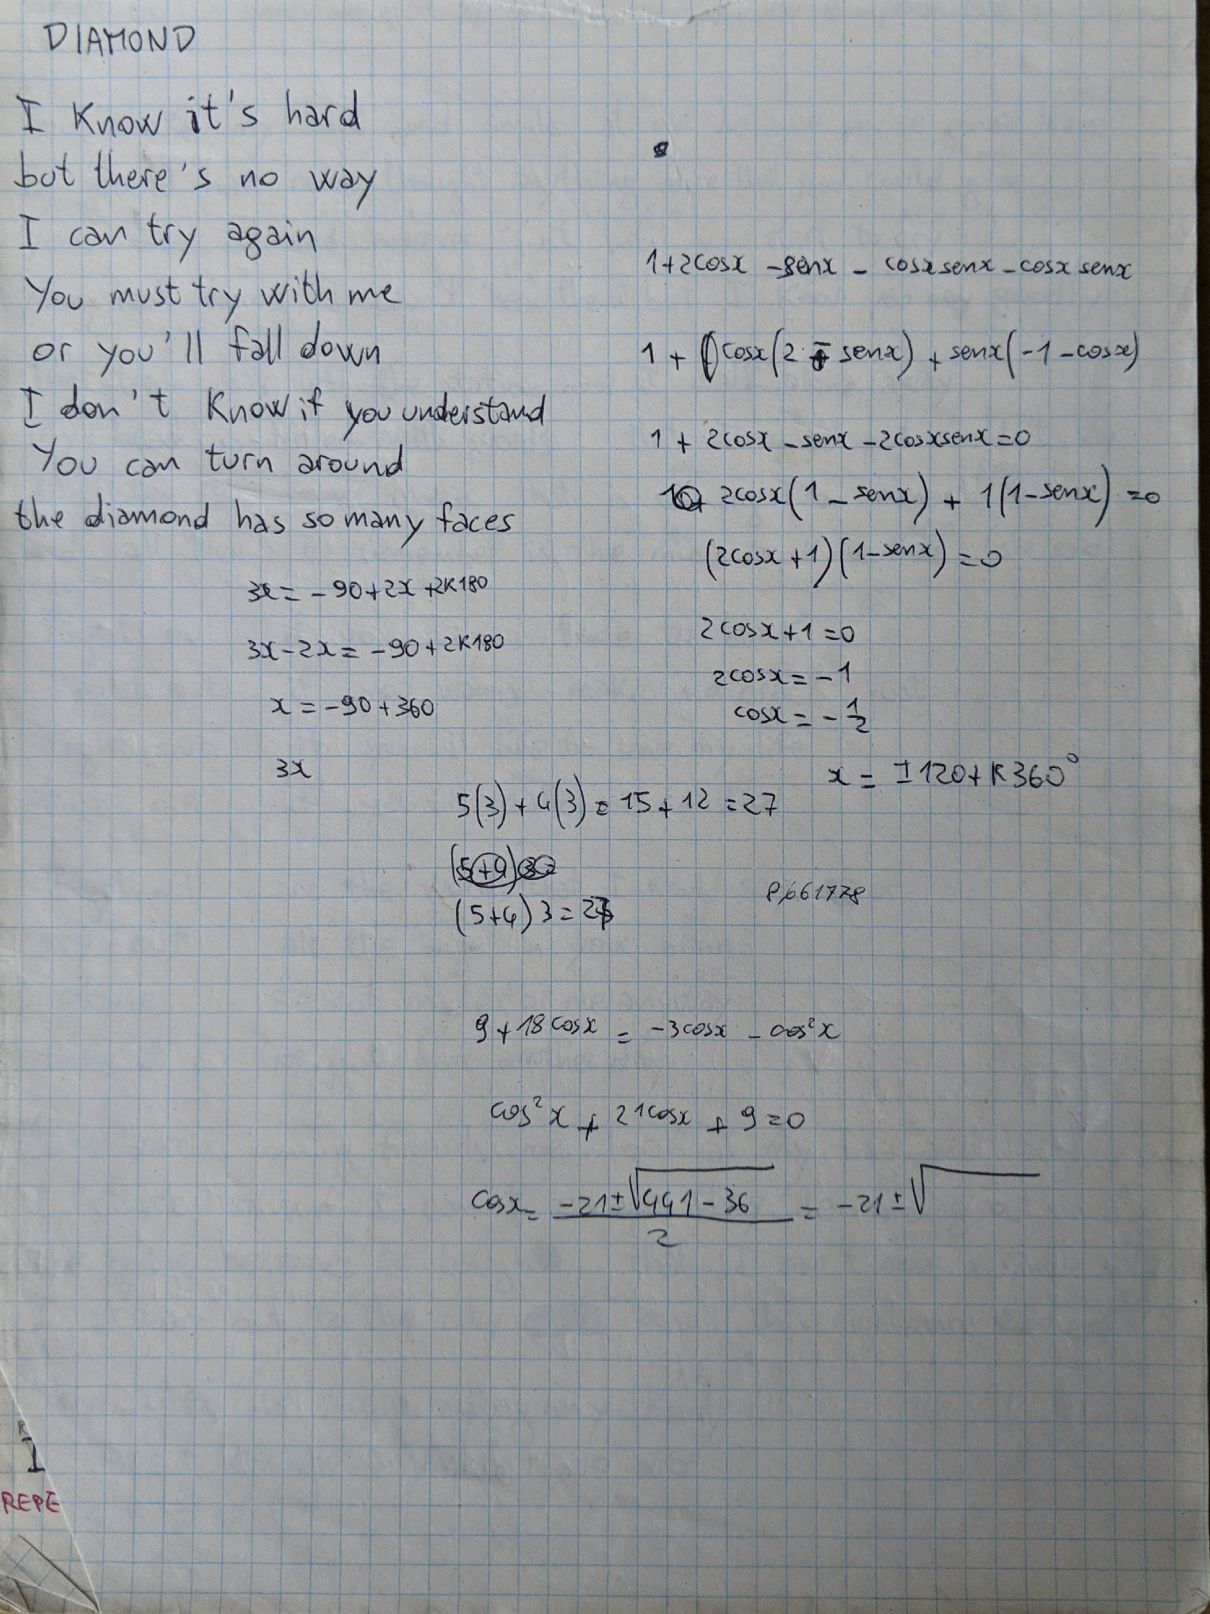 DIAMOND
I know it's hard
but there's no way
I can try again
You must try with me
or you'll fall down
I don't know if you understand
You can turn around
the diamond has so many faces
3x = -90+2x+2K180
3x-2x = -90+2K180
x = -90+360
3x
1+2cosx -senx - cosxsenx - cosx senx
1 + cosx(2 - senx) + senx(-1-cosx)
1 + 2cosx - senx - 2cosxsenx = 0
2cosx(1 - senx) + 1(1-senx) = 0
(2cosx+1)(1-senx) = 0
2cosx+1 = 0
2cosx = -1
cosx = -1/2
x = ±120+K360°
5(3)+4(3) = 15+12 = 27
(5+4)3 = 27
9+18cosx = -3cosx - cos²x
cos²x + 21cosx + 9 = 0
cosx = (-21±√441-36)/2 = -21±√
REPE